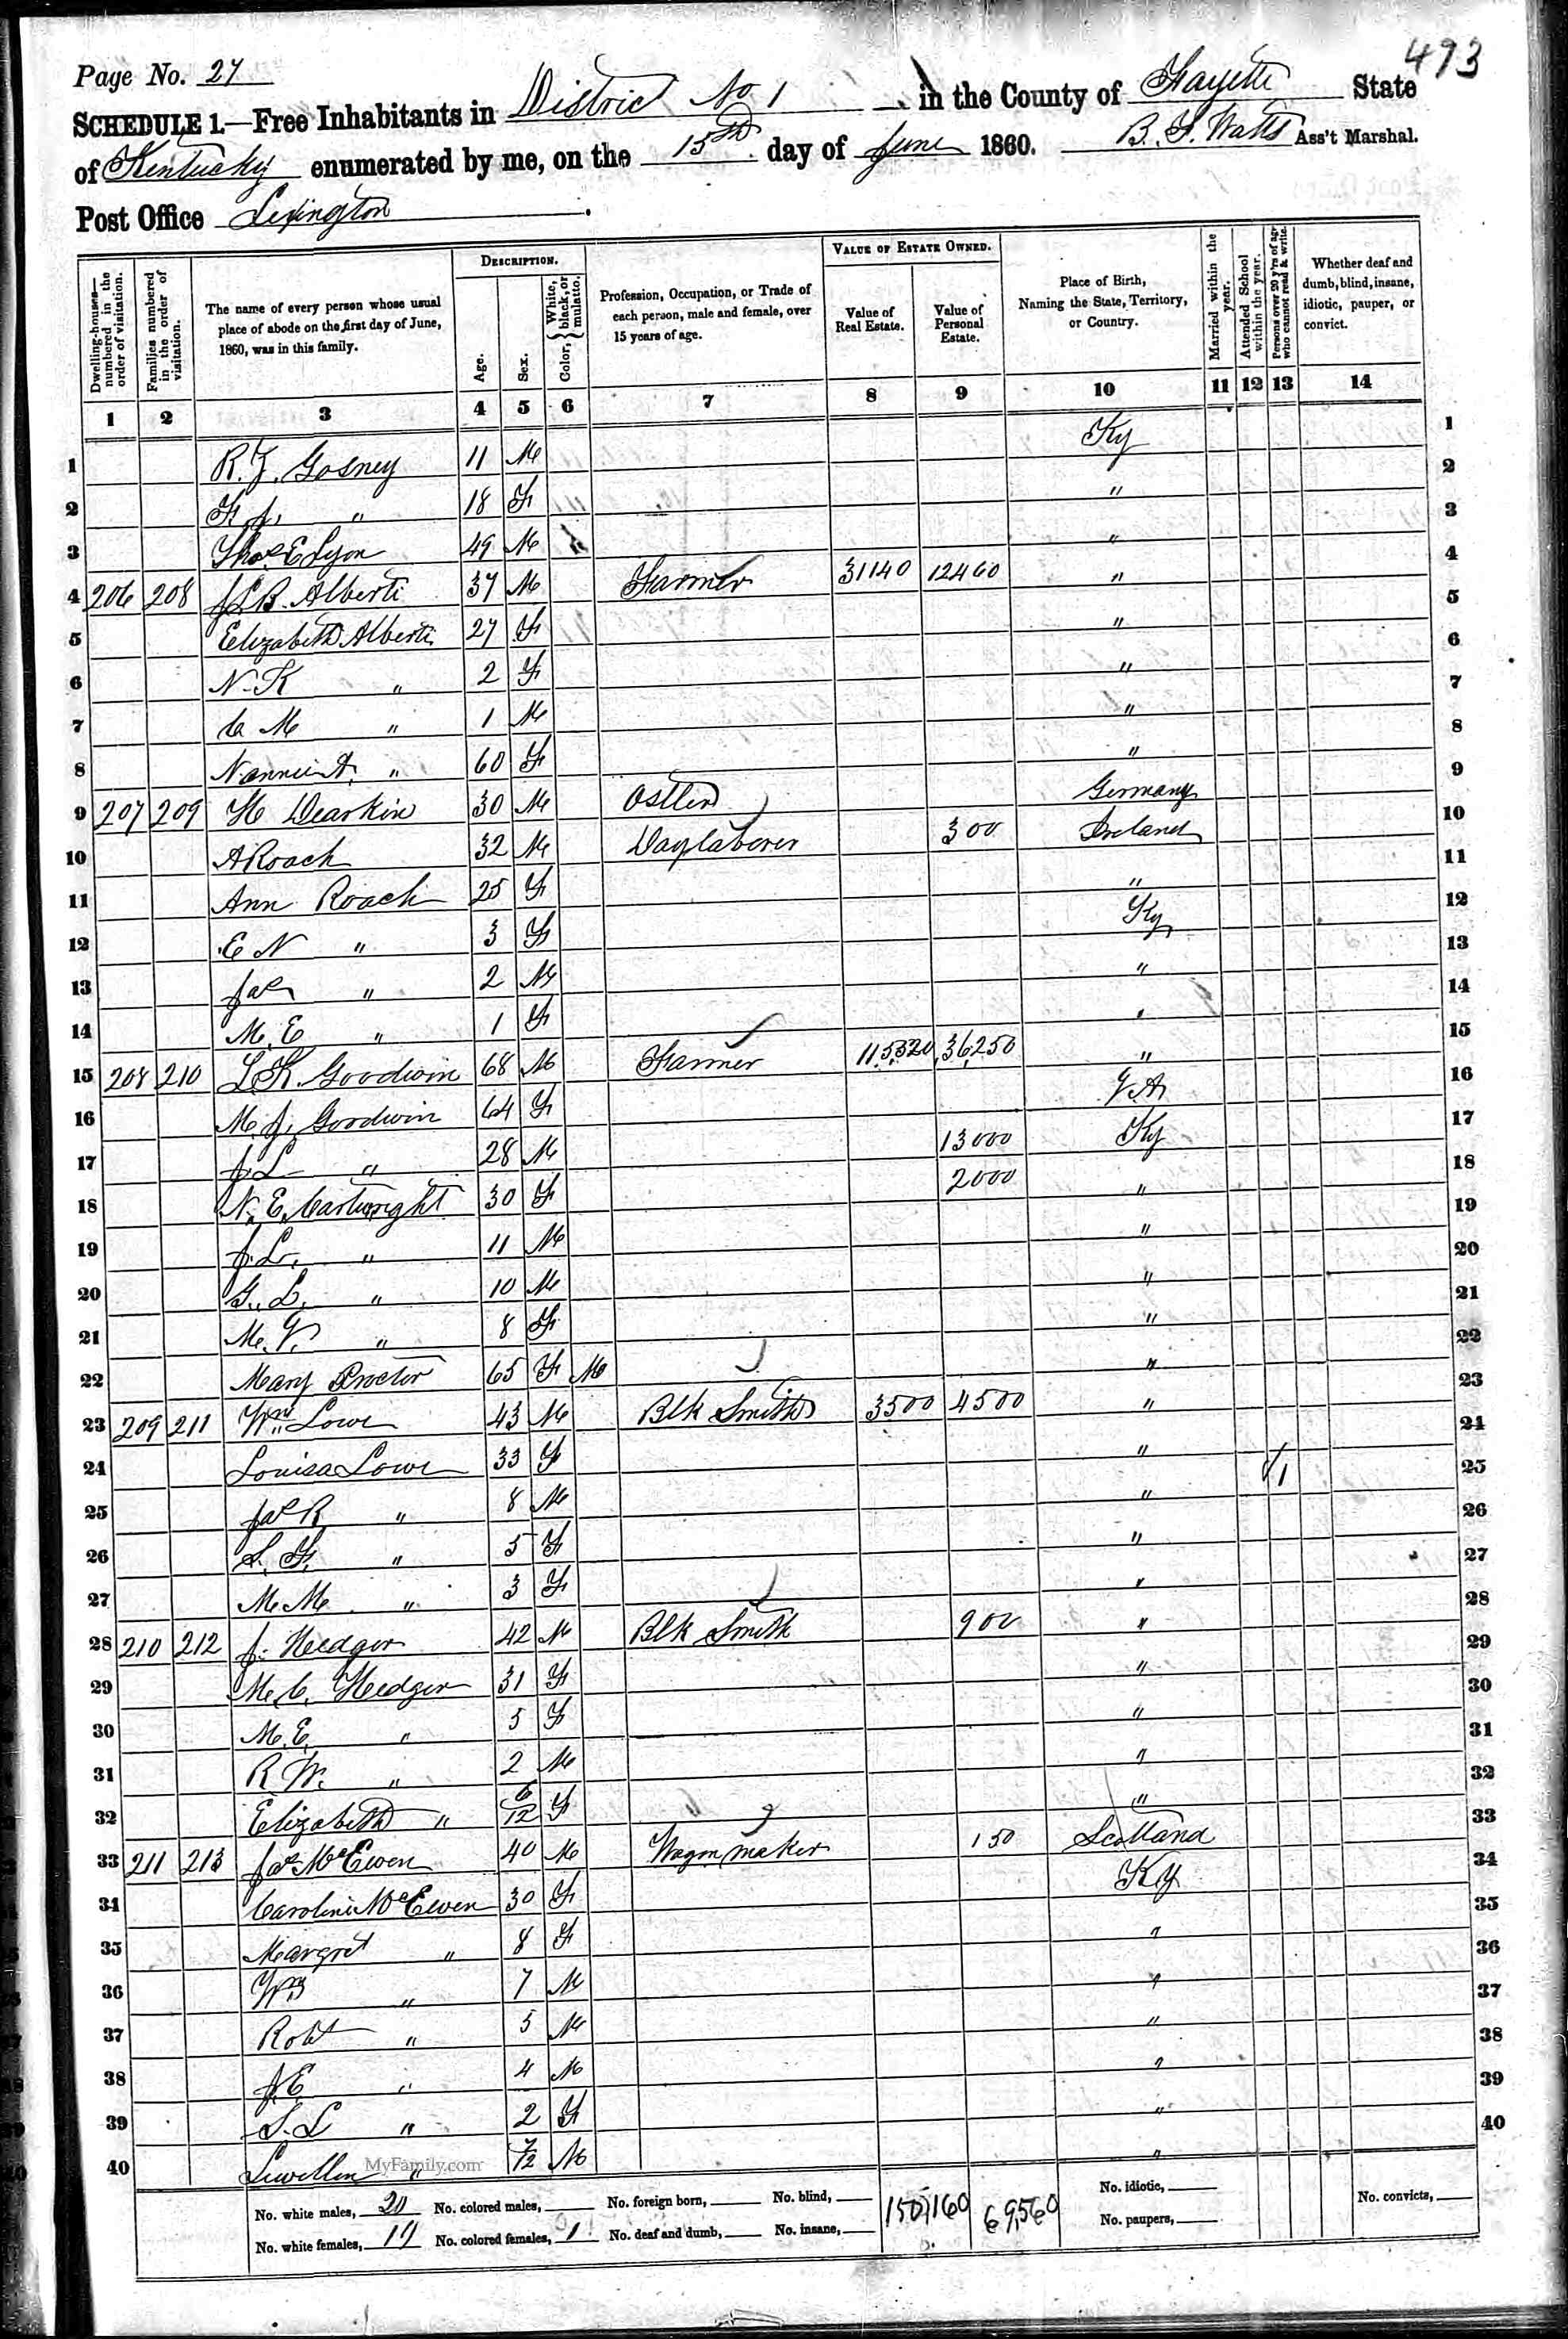 493
Page No. 27
SCHEDULE 1.—Free Inhabitants in District No 1 in the County of Fayette State
of Kentucky enumerated by me, on the 15th day of June 1860. B. F. Watts Ass't Marshal.
Post Office Lexington.
Dwelling-houses—numbered in the order of visitation. Families numbered in the order of visitation. The name of every person whose usual place of abode on the first day of June, 1860, was in this family. DESCRIPTION. Age. Sex. Color, { White, black, or mulatto. Profession, Occupation, or Trade of each person, male and female, over 15 years of age. VALUE OF ESTATE OWNED. Value of Real Estate. Value of Personal Estate. Place of Birth, Naming the State, Territory, or Country. Married within the year. Attended School within the year. Persons over 20 y'rs of age who cannot read & write. Whether deaf and dumb, blind, insane, idiotic, pauper, or convict.
1 2 3 4 5 6 7 8 9 10 11 12 13 14
1 Gosney 11 M Ky 1
2 F. J. " 18 F " 2
3 Thos E Lyon 49 M " 3
4 206 208 J L B. Alberti 37 M Farmer 31140 12460 " 4
5 Elizabeth Alberti 27 F " 5
6 N. K " 2 F " 6
7 C M " 1 M " 7
8 Nannie A. " 60 F " 8
9 207 209 H Dearkin 30 M Ostler Germany 9
10 A Roach 32 M Day laborer 300 Ireland 10
11 Ann Roach 25 F " 11
12 E N " 3 F Ky 12
13 Jas " 2 M " 13
14 M. E " 1 F " 14
15 208 210 L. K. Goodwin 68 M Farmer 115320 36250 " 15
16 M. J. Goodwin 64 F VA 16
17 J. L " 28 M 13000 Ky 17
18 N. E. Cartwright 30 F 2000 " 18
19 J. L. " 11 M " 19
20 G. L. " 10 M " 20
21 M. V. " 8 F " 21
22 Mary Proctor 65 F M " 22
23 209 211 Wm Lowe 43 M Blk Smith 3500 4500 " 23
24 Louisa Lowe 33 F " 1 24
25 Jas R " 8 M " 25
26 S. F. " 5 F " 26
27 M. M. " 3 F " 27
28 210 212 J. Hedger 42 M Blk Smith 900 " 28
29 M. C. Hedger 31 F " 29
30 M. E. " 5 F " 30
31 R W. " 2 M " 31
32 Elizabeth " 6/12 F " 32
33 211 213 Jas McEwen 40 M Wagon maker 150 Scotland 33
34 Caroline McEwen 30 F Ky 34
35 Margret " 8 F " 35
36 Wm " 7 M " 36
37 Robt " 5 M " 37
38 J. E. " 4 M " 38
39 S. L " 2 F " 39
40 Lewellen " 7/12 M " 40
MyFamily.com
No. white males, 20 No. colored males, No. foreign born, No. blind, 150,160 69,560 No. idiotic, No. convicts,
No. white females, 19 No. colored females, 1 No. deaf and dumb, No. insane, No. paupers,